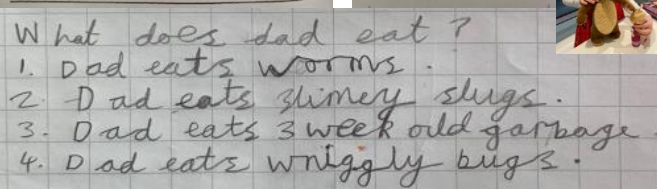 What does dad eat?
1. Dad eats worms.
2. Dad eats slimey slugs.
3. Dad eats 3 week old garbage
4. Dad eats wriggly bugs.